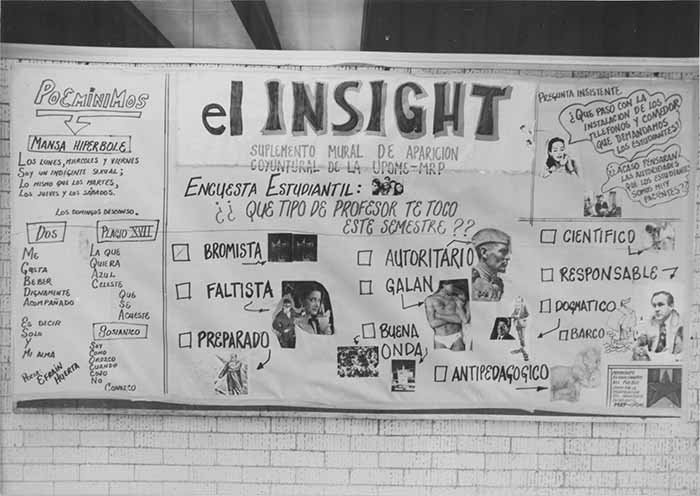 POEMÍNIMOS
MANSA HIPÉRBOLE
LOS LUNES, MIERCOLES Y VIERNES
SOY UN INDIGENTE SEXUAL;
LO MISMO QUE LOS MARTES,
LOS JUEVES Y LOS SÁBADOS.
LOS DOMINGOS DESCANSO.
DOS
ME
GUSTA
BEBER
DIGNAMENTE
ACOMPAÑADO
ES DECIR
SOLO
Y
MI ALMA
POR: EFRAÍN HUERTA
PLAGIO XVII
LA QUE
QUIERA
AZUL
CELESTE
QUE
SE
ACUESTE
SOY
COMO
OROZCO
CUANDO
COJO
NO
CONOZCO
el INSIGHT
SUPLEMENTO MURAL DE APARICION
COYUNTURAL DE LA UPOME-MRP
ENCUESTA ESTUDIANTIL:
¿¿ QUE TIPO DE PROFESOR TE TOCO
ESTE SEMESTRE ??
BROMISTA
FALTISTA
PREPARADO
AUTORITARIO
GALAN
BUENA
ONDA
ANTIPEDAGOGICO
CIENTIFICO
RESPONSABLE
DOGMATICO
BARCO
PREGUNTA INSISTENTE
¿QUE PASO CON LA
INSTALACION DE LOS
TELEFONOS Y COMEDOR
QUE DEMANDAMOS
LOS ESTUDIANTES?
¿ACASO PENSARAN
LAS AUTORIDADES
QUE LOS ESTUDIANTES
SOMOS MUY
PACIENTES?